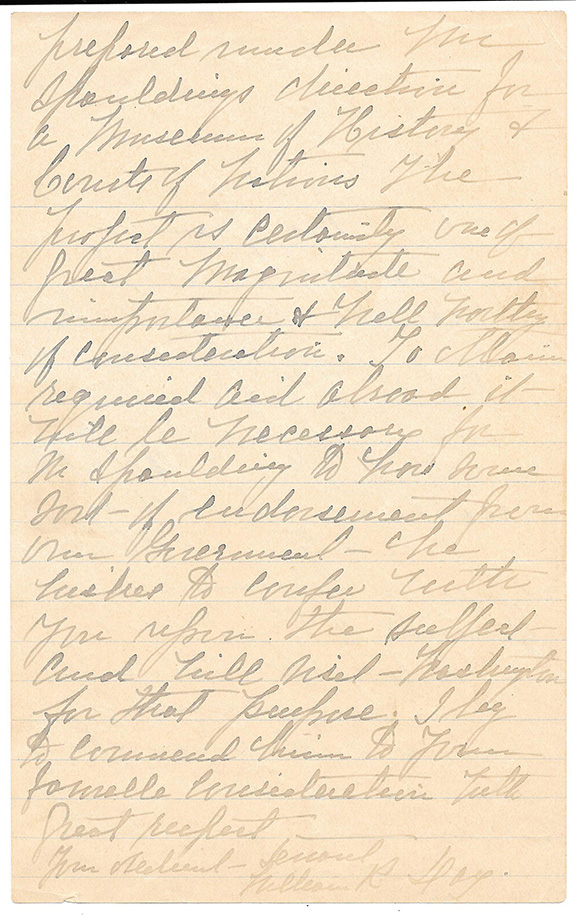 prepared under Mr
Spauldings direction for
a Museum of History &
Courts of Nations The
project is certainly one of
great magnitude and
importance & well worthy
of consideration. To obtain
required aid abroad it
will be necessary for
Mr Spaulding to have some
sort of endorsement from
our Government - he
wishes to confer with
you upon the subject
and will visit - Washington
for that purpose. I beg
to commend him to your
favorable consideration with
great respect
Your obedient - servant
William R Day.